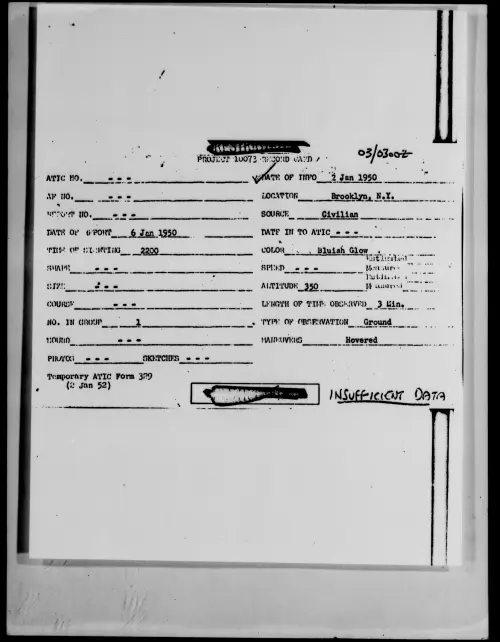 PROJECT 10073 RECORD CARD
03/0300Z
ATIC NO. - - -
DATE OF INFO 2 Jan 1950
AF NO. - - -
LOCATION Brooklyn, N.Y.
REPORT NO. - - -
SOURCE Civilian
DATE OF REPORT 6 Jan 1950
DATE IN TO ATIC - - -
TIME OF SIGHTING 2200
COLOR Bluish Glow
SHAPE - - -
SPEED - - -
Estimated
Measured
SIZE - - -
ALTITUDE 350
Estimated
Measured
COURSE - - -
LENGTH OF TIME OBSERVED 3 Min.
NO. IN GROUP 1
TYPE OF OBSERVATION Ground
SOUND - - -
MANEUVERS Hovered
PHOTOS - - - SKETCHES - - -
Temporary ATIC Form 329
(2 Jan 52)
INSUFFICIENT DATA